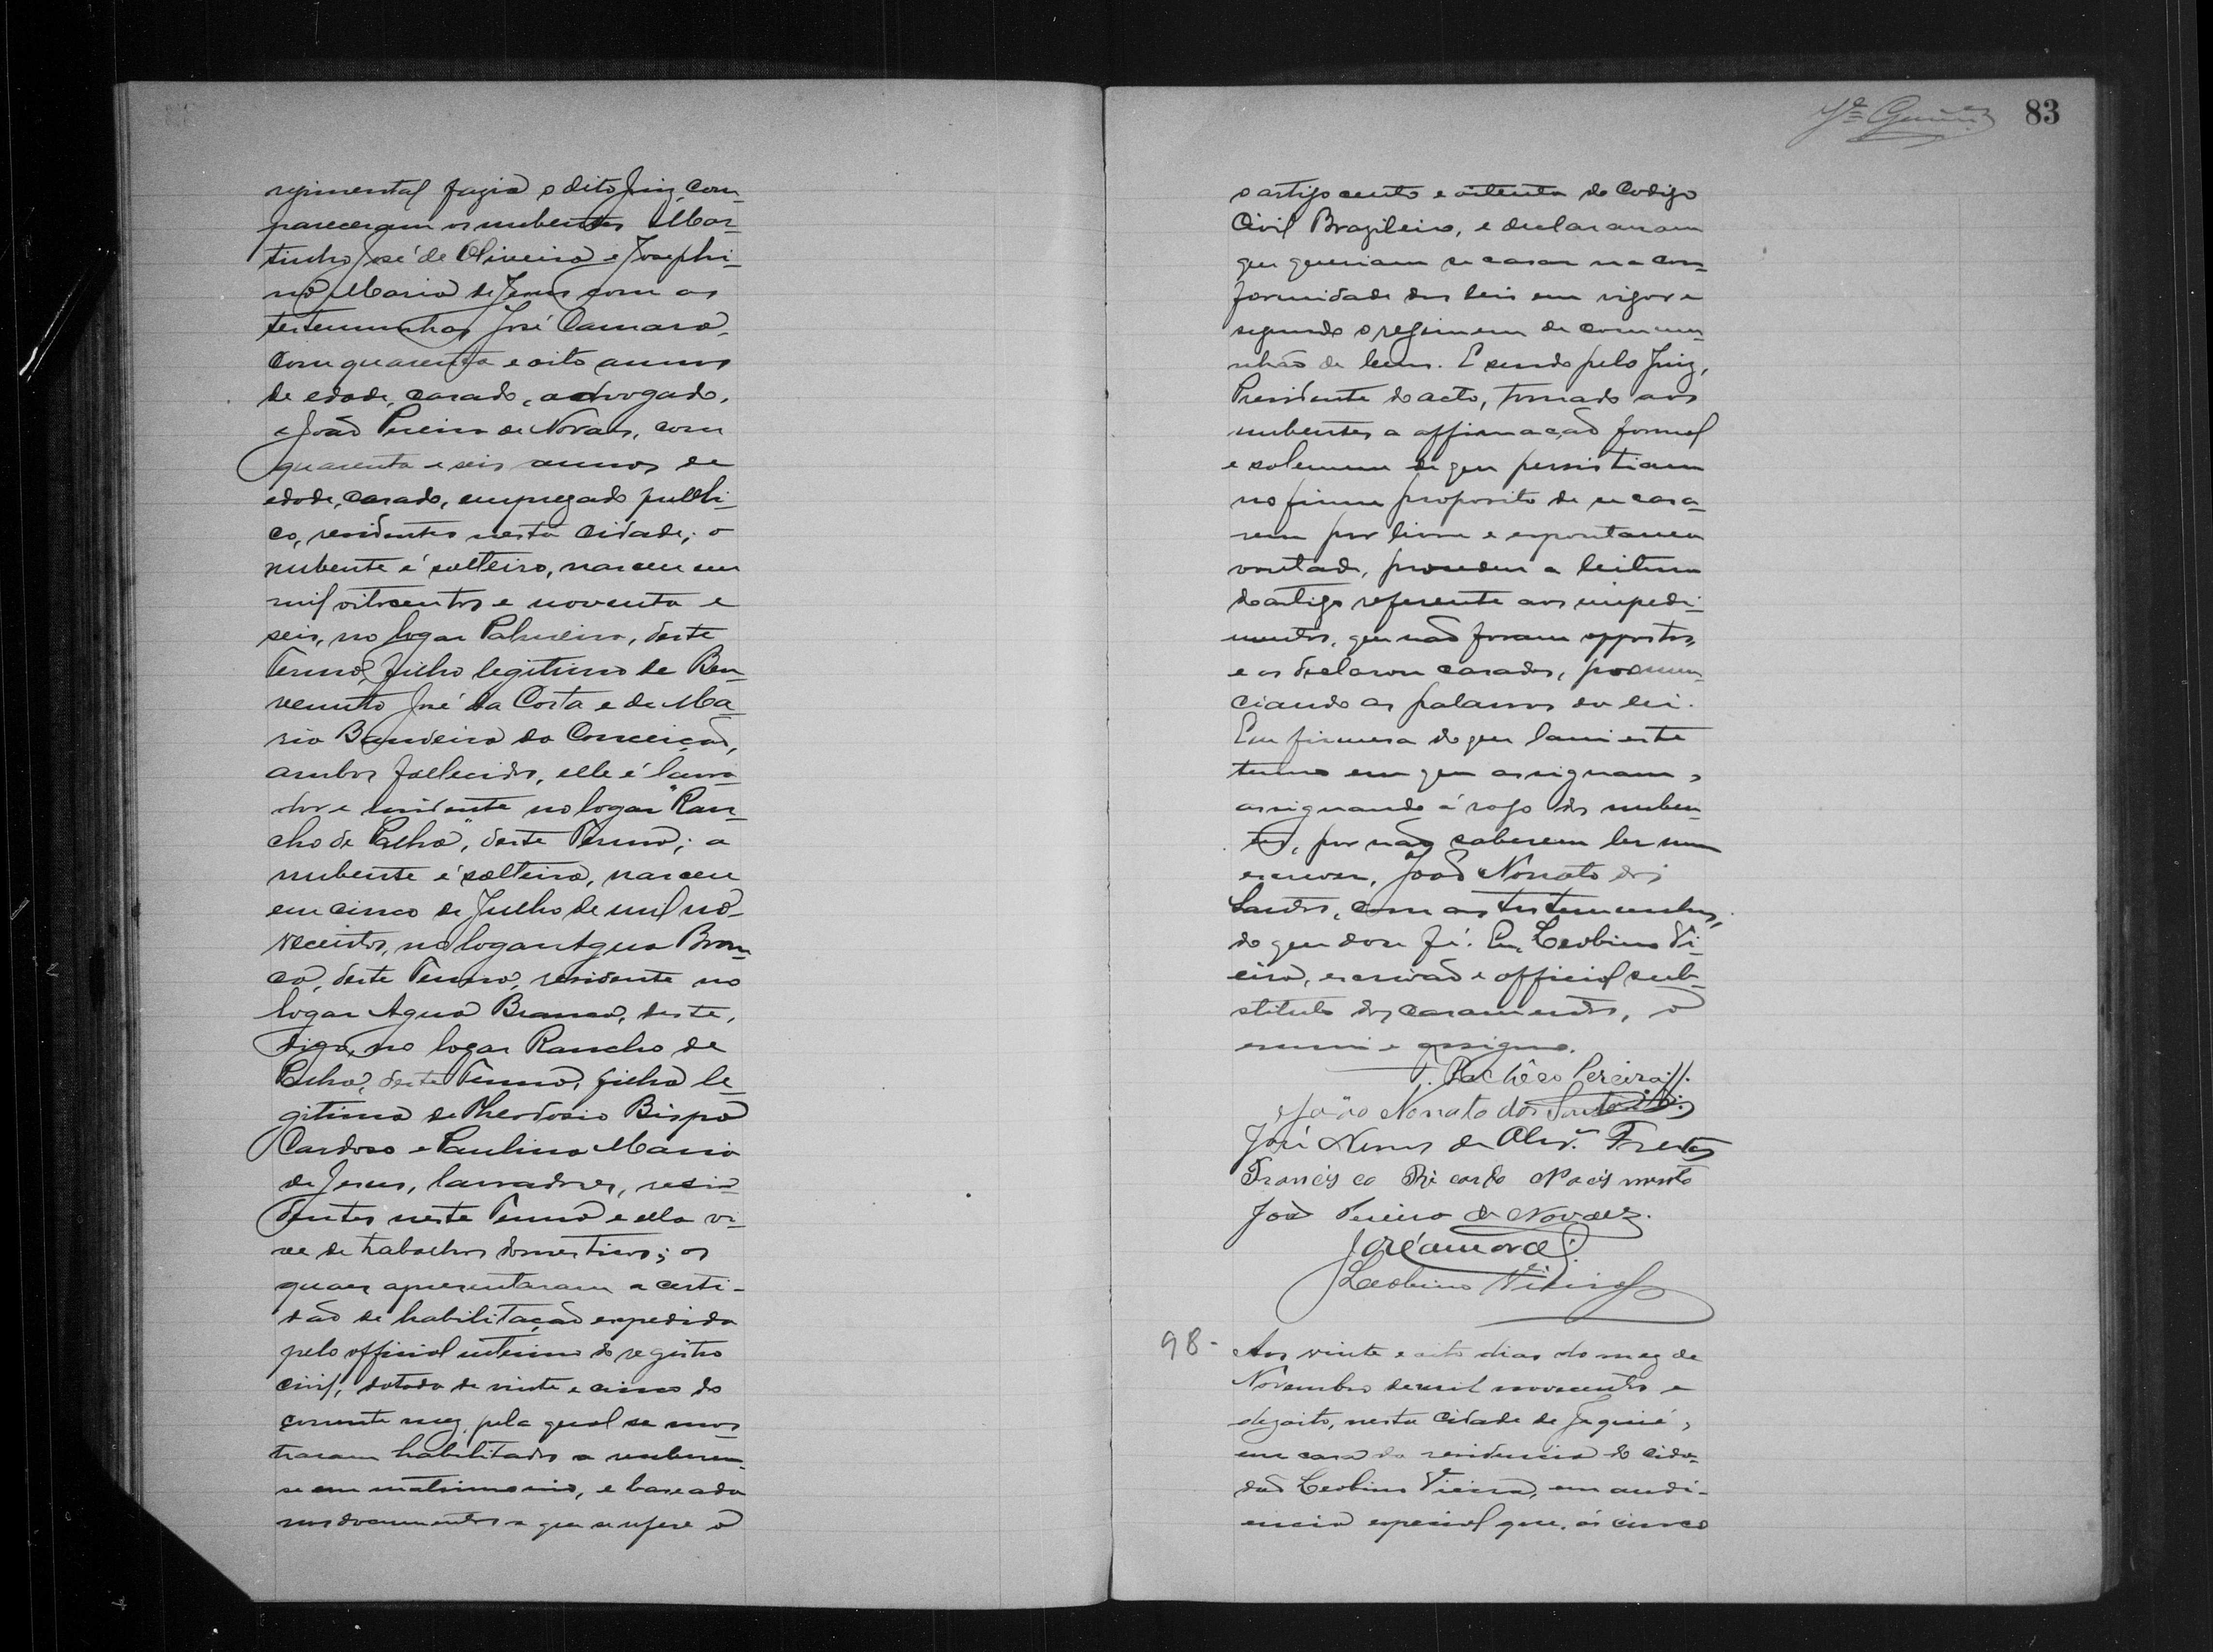 regimental fazia o dito Juiz, com-
pareceram os nubentes Mar-
tinho José de Oliveira e Josephi-
na Maria de Jesus com as
testemunhas José Camara,
com quarenta e oito annos
de edade, casado, advogado,
e João Pereira de Novaes, com
quarenta e seis annos de
edade, casado, empregado publi-
co, residentes nesta Cidade; o
nubente é solteiro, nasceu em
mil oitocentos e noventa e
seis, no logar Palmeira, deste
Termo, filho legitimo de Ben-
venuto José da Costa e de Ma-
ria Bandeira da Conceição,
ambos fallecidos, elle é lavra-
dor e residente no logar "Ran-
cho de Palha", deste Termo; a
nubente é solteira, nasceu
em cinco de Julho de mil no-
vecentos, no logar Agua Bran-
ca, deste Termo, residente no
logar Agua Branca, deste,
digo, no logar Rancho de
Palha, deste Termo, filha le-
gitima de Theodosio Bispo
Cardoso e Paulina Maria
de Jesus, lavradores, resi-
dentes neste Termo e ella vi-
ve de trabalhos domesticos; os
quaes apresentaram a certi-
dão de habilitação expedida
pelo official interino do registro
civil, datada de vinte e cinco do
corrente mez, pela qual se mos-
traram habilitados a receberem-
se em matrimonio, e baseada
nos documentos a que se refere o
83
o artigo cento e oitenta do Codigo
Civil Brazileiro, e declararam
que queriam se casar na con-
formidade das leis em vigor e
segundo o regimem de commu-
nhão de bens. E sendo pelo Juiz,
Presidente do acto, tomado aos
nubentes a affirmação formal
e solemne de que persistiam
no firme proposito de se casa-
rem por livre e espontanea
vontade, procedeu a leitura
do artigo referente aos impedi-
mentos, que não foram oppostos,
e os declarou casados, pronun-
ciando as palavras da lei.
Em firmeza do que lavrei este
termo em que assignam,
assignando á rogo dos nuben-
tes, por não saberem ler nem
escrever, João Nonato dos
Santos, com as testemunhas,
do que dou fé. Eu, Leobino Vi-
eira, escrivão e official sub-
stituto dos casamentos, o
escrevi e assigno.
T. Pachêco Pereira
João Nonato dos Santos
José Nunes de Olivª Freitas
Francisco Ricardo Nacismento
João Pereira de Novaez.
José Camara
Leobino Vieira
98- Aos vinte e oito dias do mez de
Novembro de mil novecentos e
dezoito, nesta Cidade de Jequié,
em casa da residencia do cida-
dão Leobino Vieira, em audi-
encia especial que, ás cinco